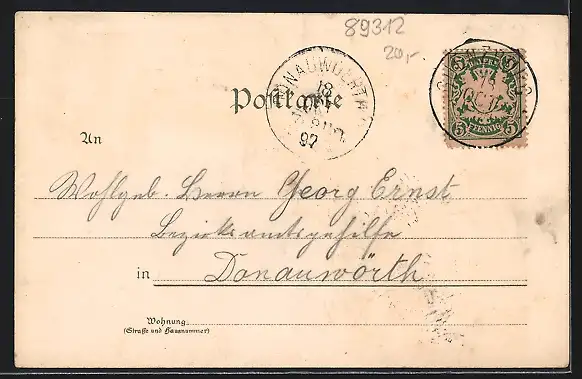 89312
20,-
DONAUWOERTH
18
OKT
97
Postkarte
BAYERN
5 PFENNIG 5
An
Wohlgeb. Herrn Georg Ernst
Bezirksamtsgehilfe
in Donauwörth
Wohnung
(Straße und Hausnummer)